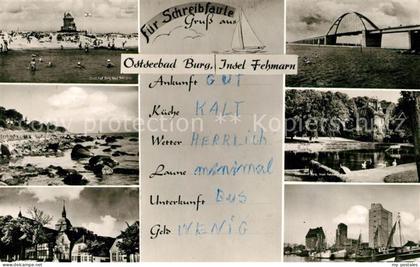 Für Schreibfaule
Gruß aus
Ostseebad Burg, Insel Fehmarn
Ankunft GUT
Küche KALT
Wetter HERRLich
Laune manchmal
Unterkunft Bus
Geld WENIG